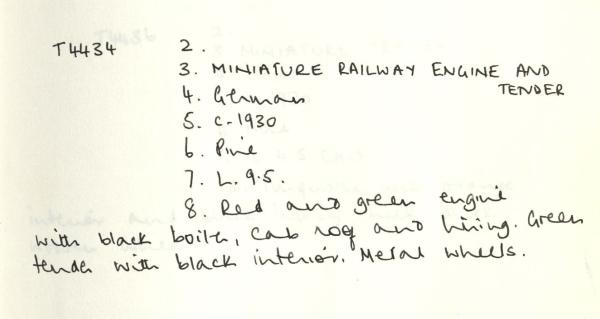 T4434 2.
3. MINIATURE RAILWAY ENGINE AND
TENDER
4. German
5. c-1930
6. Pine
7. L. 9.5.
8. Red and green engine
with black boiler, cab roof and lining. Green
tender with black interior. Metal wheels.